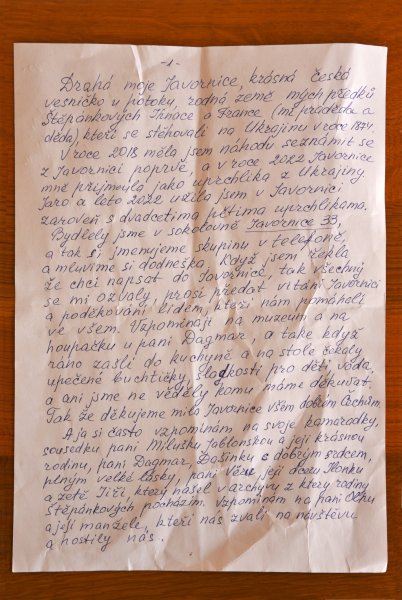 -1-
Drahá moje Javornice, krásná česká
vesničko u potoku, rodná země mých předků
Štěpánkových Ignáce a France (mi pradědu a
děda), kteří se stěhovali na Ukrajinu v roce 1874.
V roce 2018 měla jsem náhodu seznámit se
z Javornicí poprvé, a v roce 2022 Javornice
mně přijmula jako uprchlika z Ukrajiny
Jaro a léto 2022 užila jsem v Javornici
zaroveň s dvadcetima pětima uprchlikama.
Bydlely jsme v sokolovně Javornice 33,
a tak si jmenujeme skupinu v telefoně,
a mluvíme si dodneška. Když jsem řekla
že chci napsat do Javornice, tak všechny
se mi ozvaly, prosi předat vitání Javornici
a poděkování lidem, kteří nám pomáhali
ve všem. Vzpomínáji na muzeum a na
houpačku u paní Dagmar, a take když
ráno zašli do kuchyně a na stole čekaly
upečené buchtičky, sladkosti pro děti, voda,
a ani jsme ne věděly komu máme děkuvat.
Tak že děkujeme milo Javornice všem dobrým Čechům.
A ja si často vzpomínám na svoje kamaradky,
sousedku paní Milušku Jablonskou a její krásnou
rodinu, paní Dagmar, Dašinku s dobrým srdcem,
plným velké lásky, paní Věru, její dceru Ilonku
a zetě Jiří, ktery našel v archyvu z ktery rodiny
Štěpánkových pocházim. Vzpomínám na paní Olhu
a její manžele, kteří nás zvali na návštěvu
a hostily nás.